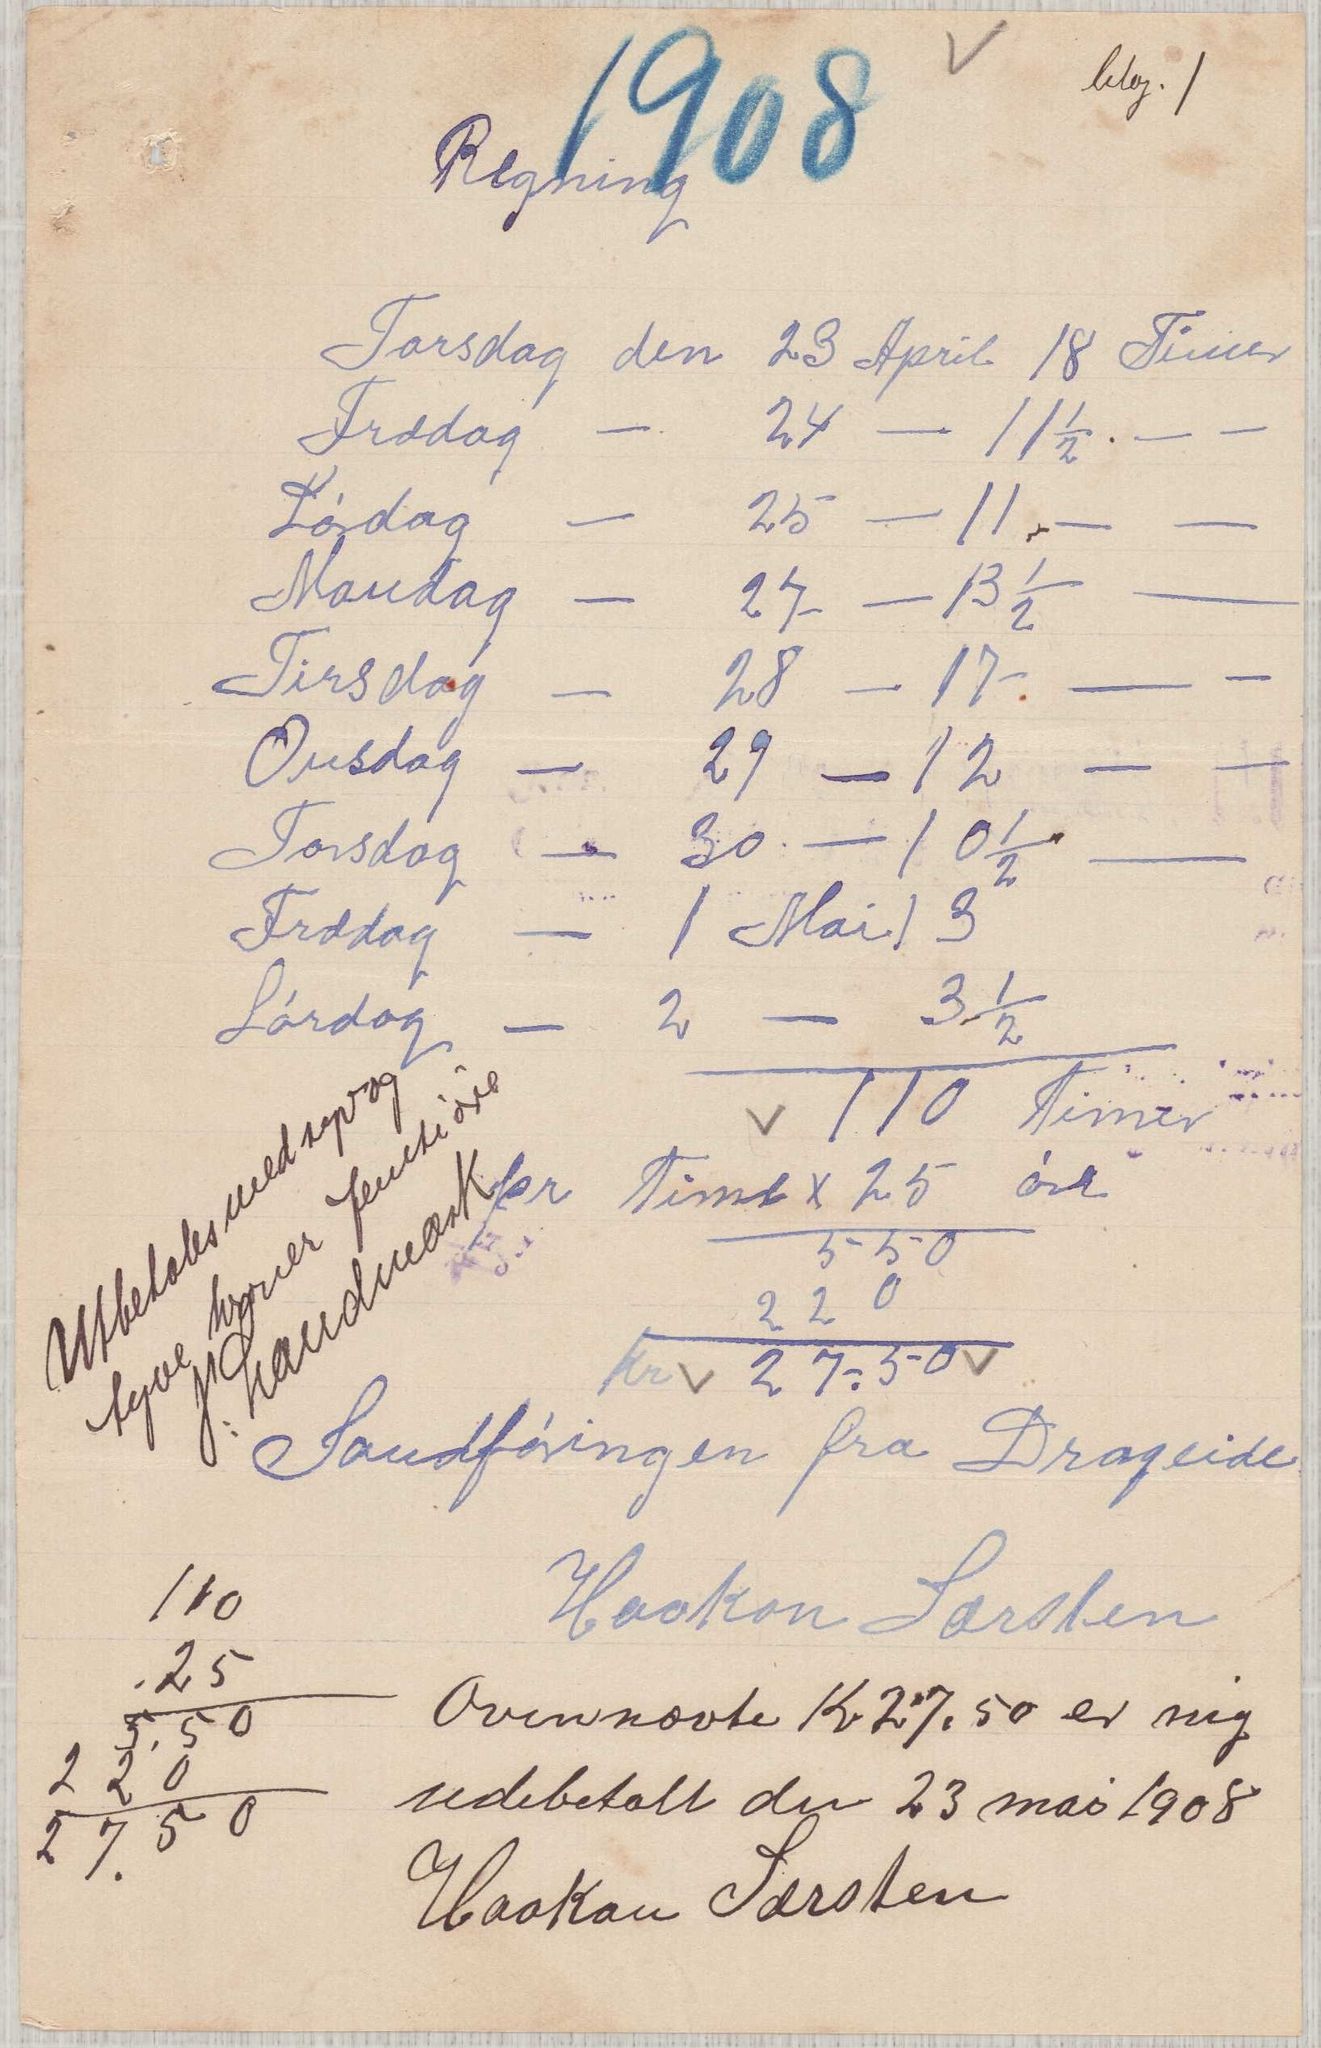 1908
bilag. 1
Regning
Torsdag den 23 April 18 Timer
Frædag — 24 — 11 1/2 . — —
Lórdag — 25 — 11 . — —
Mandag — 27 — 13 1/2 —
Tirsdag — 28 — 17 . — —
Onsdag — 29 — 12 — —
Torsdag — 30 — 10 1/2 —
Frædag — 1 Mai 13
Lórdag — 2 — 3 1/2
110 Timer
pr Time x 25 óre
550
220
Kr 27.50
Utbetales med syv og
tyve kroner femti øre
J. Landmark
Sandfóringen fra Drageide
Haakon Sørsten
110
.25
5.50
220
27.50
Ovennævte Kr 27.50 er mig
udebetalt den 23 mai 1908
Haakon Sørsten